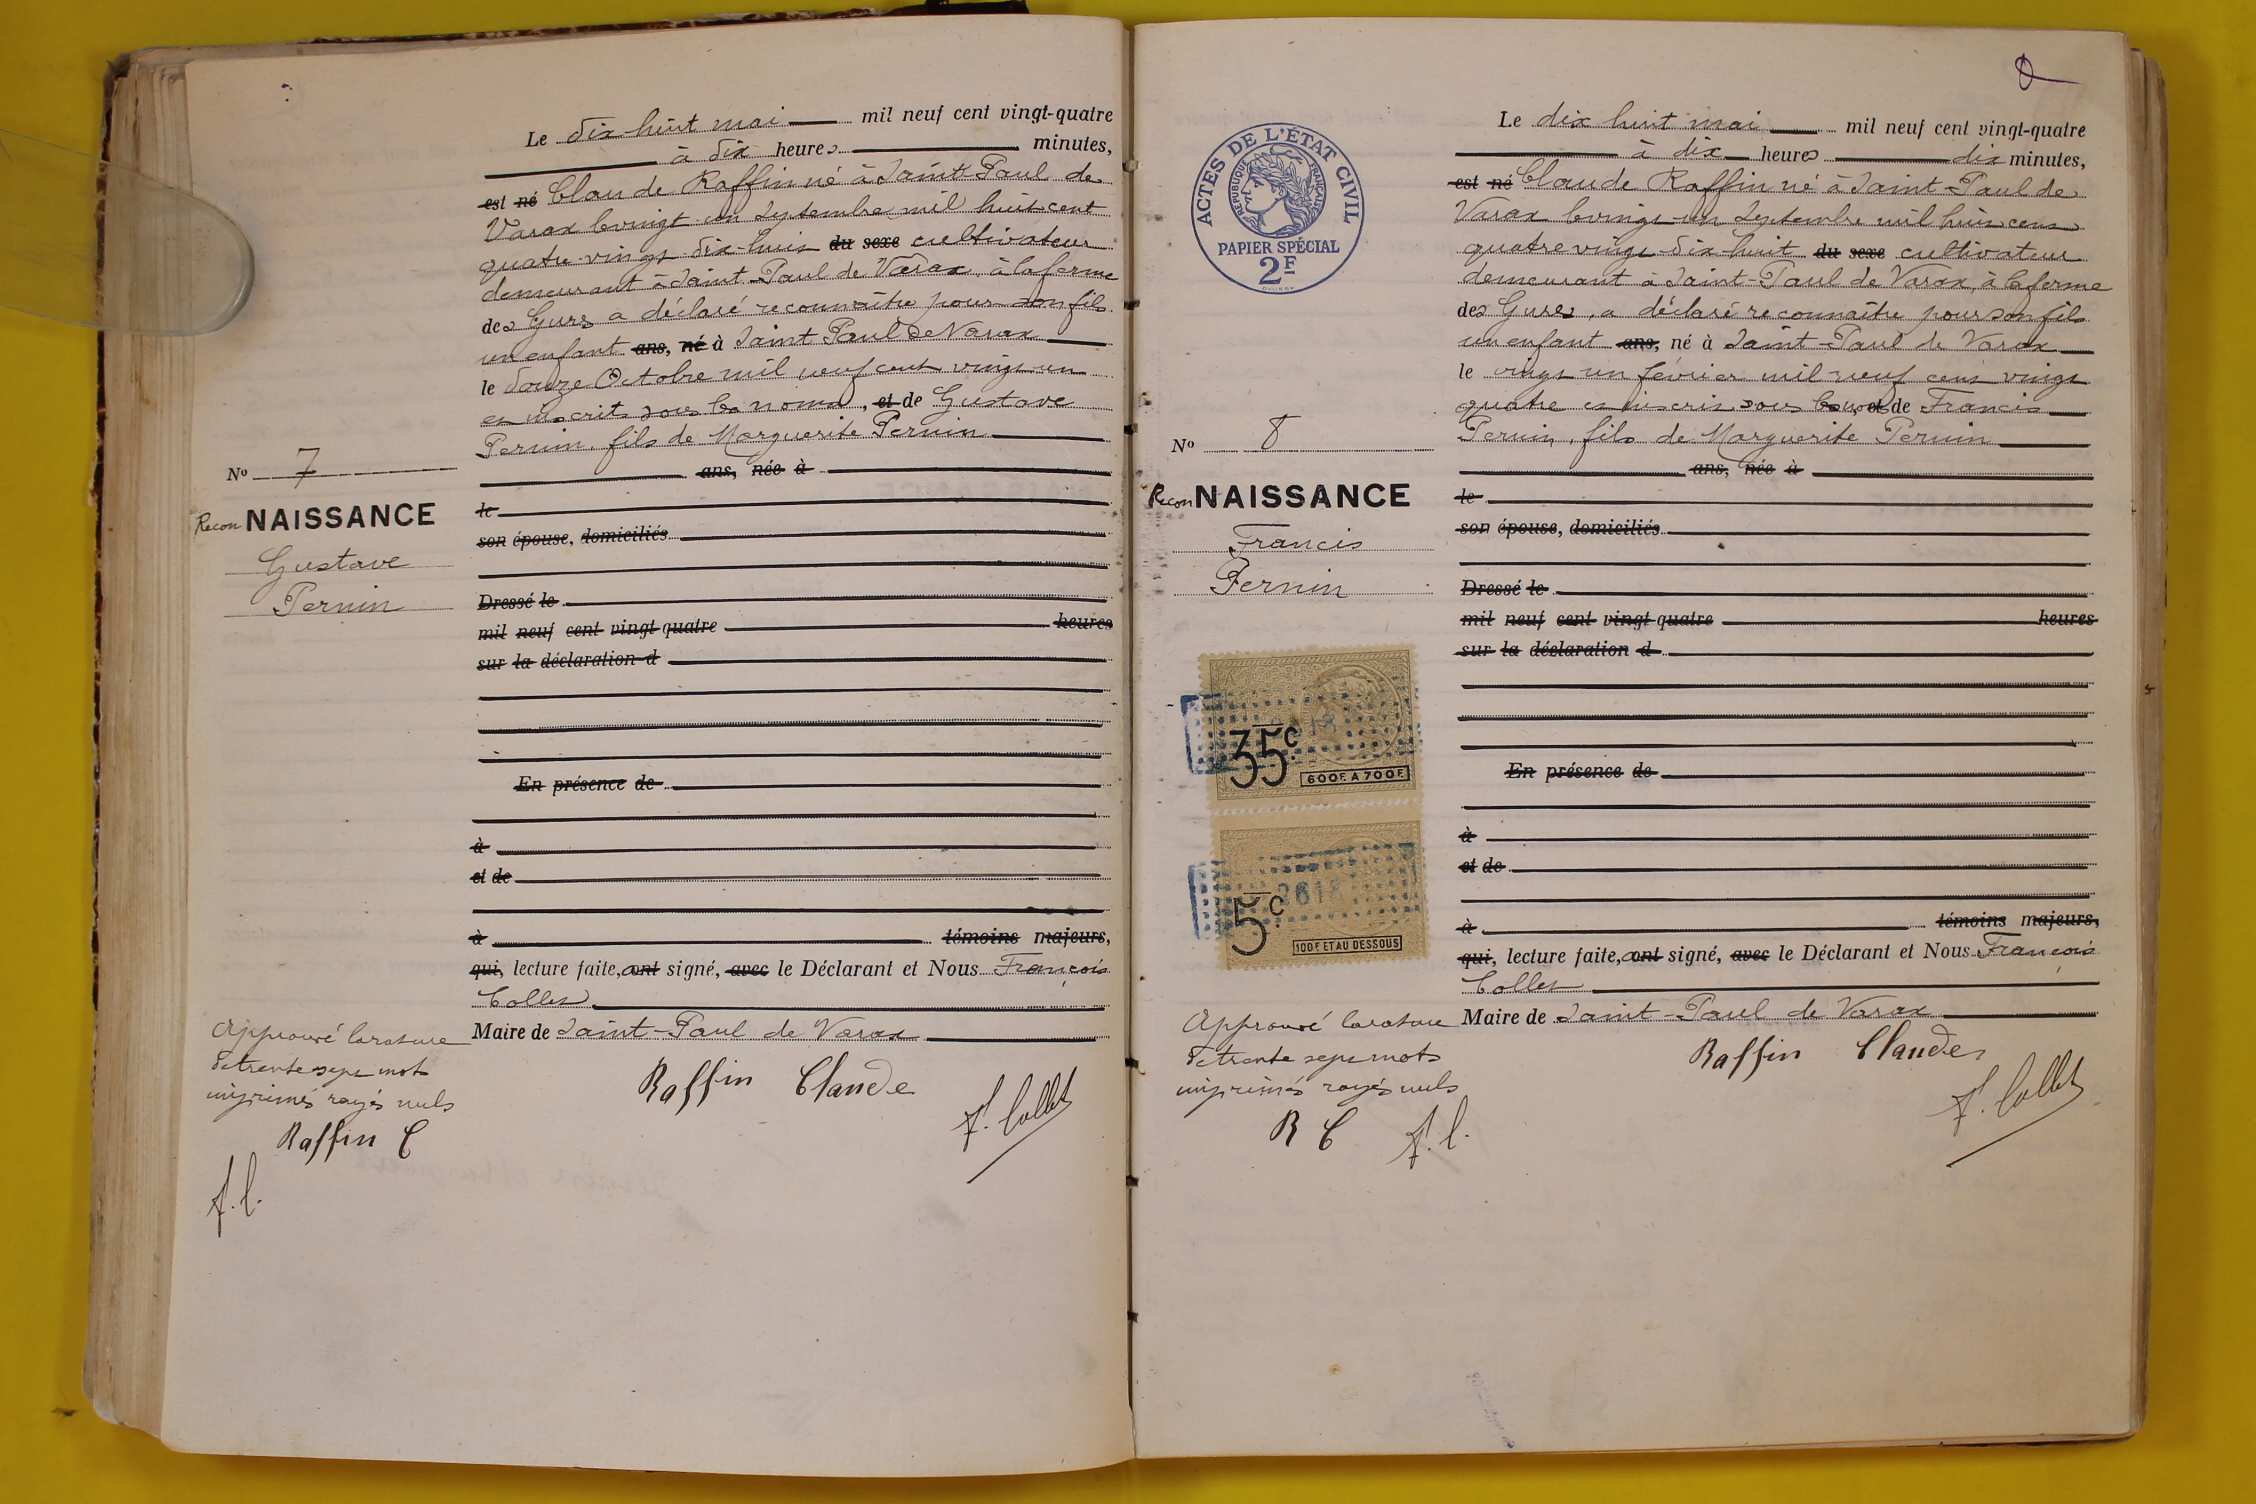 Le dix huit mai mil neuf cent vingt-quatre
à dix heures minutes,
est né Claude Raffin né à Saint Paul de
Varax le vingt un Septembre mil huit cent
quatre-vingt dix-huit du sexe cultivateur
demeurant à Saint-Paul de Varax, à la ferme
des Gures a déclaré reconnaître pour son fils
un enfant ans, né à Saint Paul de Varax
le douze Octobre mil neuf cent vingt un
et inscrit sous les noms, et de Gustave
Pernin, fils de Marguerite Pernin
ans, née à
le
son épouse, domiciliés
Dressé le
mil neuf cent vingt-quatre heures
sur la déclaration d
En présence de
à
et de
à témoins majeurs,
qui, lecture faite, ont signé, avec le Déclarant et Nous François
Collet
Maire de Saint-Paul de Varax
Raffin Claude
F. Collet
No 7
Recon NAISSANCE
Gustave
Pernin
Approuvé la rature
de trente sept mots
imprimés rayés nuls
Raffin C
F. C.
8
ACTES DE L'ÉTAT CIVIL
RÉPUBLIQUE FRANÇAISE
PAPIER SPÉCIAL
2F
Le dix huit mai mil neuf cent vingt-quatre
à dix heures dix minutes,
est né Claude Raffin né à Saint-Paul de
Varax le vingt-un Septembre mil huit cent
quatre vingt-dix-huit du sexe cultivateur
demeurant à Saint-Paul de Varax, à la ferme
des Gures, a déclaré reconnaître pour son fils
un enfant ans, né à Saint-Paul de Varax
le vingt un février mil neuf cent vingt
quatre et inscrit sous les noms et de Francis
Pernin, fils de Marguerite Pernin
ans, née à
le
son épouse, domiciliés
Dressé le
mil neuf cent vingt-quatre heures
sur la déclaration d
En présence de
à
et de
à témoins majeurs,
qui, lecture faite, ont signé, avec le Déclarant et Nous François
Collet
Maire de Saint-Paul de Varax
Raffin Claude
F. Collet
No 8
Recon NAISSANCE
Francis
Pernin
35c
600F. A 700F.
5c
100F ET AU DESSOUS
Approuvé la rature
de trente sept mots
imprimés rayés nuls
R C F. C.